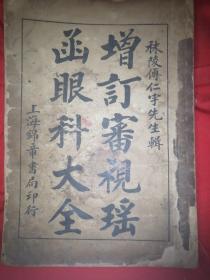 秣陵傅仁宇先生輯
增訂審視瑤
函眼科大全
上海錦章書局印行